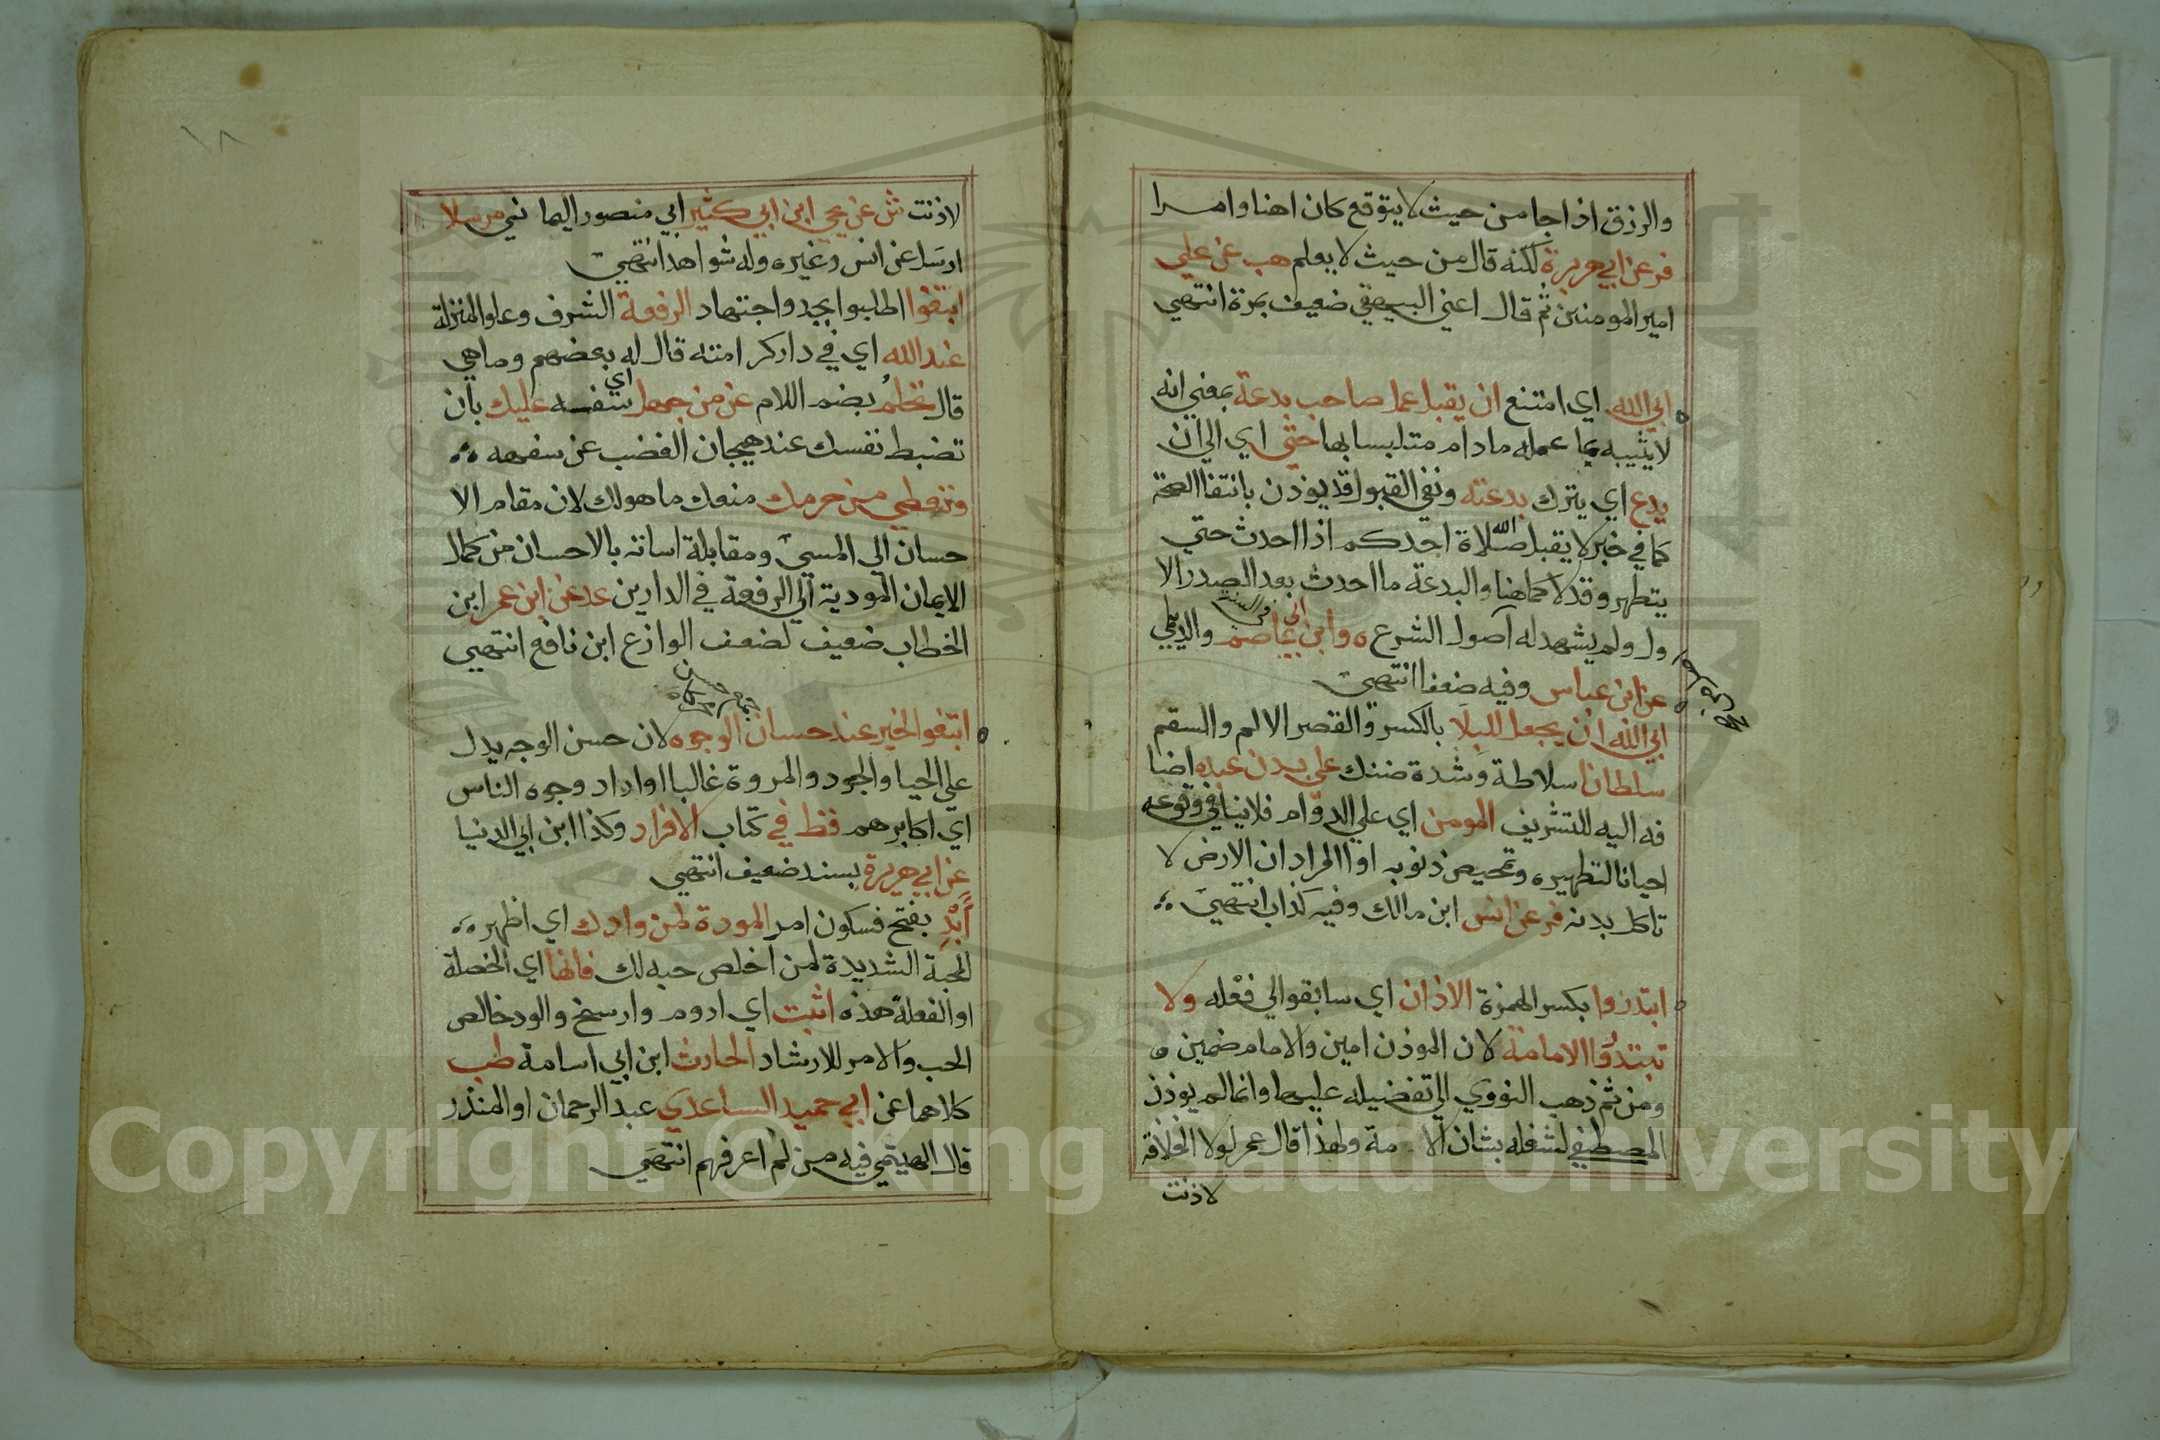 والرزق اذا جا من حيث لا يتوقع كان اهنا وامرا
فر عن ابي هريرة لكنه قال من حيث لا يعلم هب عن علي
امير المومنين ثم قال اعني البيهقي ضعيف بمرة انتهي
ابي الله اي امتنع ان يقبل عمل صاحب بدعة بمعني انه
لا يثيبه بما عمله مادام متلبسا بها حتي اي الي ان
يدع اي يترك بدعته ونفي القبول قد يوذن بانتفا الصحة
كما في خبر لا يقبل الله صلاة احدكم اذا احدث حتي
يتطهر وقد لا كما هنا والبدعة ما احدث بعد الصدر الا
ول ولم يشهد له اصول الشرع ه وابن ابي عاصم في السنة والديلمي
عن ابن عباس وفيه ضعفا انتهي
ابي الله ان يجعل للبلا بالكسر والقصر الالم والسقم
سلطانا سلاطة وشدة ضنك علي بدن عبده اضا
فه اليه للتشريف المومن اي علي الدوام فلا ينافي وقوعه
احيانا لتطهيره وتمحيص ذنوبه او المراد ان الارض لا
تاكل بدنه فر عن انس ابن مالك وفيه كذاب انتهي
ابتدروا بكسر الهمزة الاذان اي سابقوا الي فعله ولا
تبتدروا الامامة لان الموذن امين والامام ضمين ه
ومن ثم ذهب النووي الي تفضيله عليها وانما لم يوذن
المصطفي لشغله بشان الامة ولهذا قال عمر لولا الخلافة
لاذنت
١٨
لاذنت ش عن يحيي ابن ابي كثير ابي منصور اليماني مرسلا
ارسل عن انس وغيره وله شواهد انتهي
ابتغوا اطلبوا بجد واجتهاد الرفعة الشرف وعلو المنزلة
عند الله اي في دار كرامته قال له بعضهم وما هي
قال تحلم بضم اللام عن من جهل اي سفه عليك بان
تضبط نفسك عند هيجان الغضب عن سفهه
وتعطي من حرمك منعك ما هو لك لان مقام الا
حسان الي المسي ومقابلة اساته بالاحسان من كمال
الايمان المودية الي الرفعة في الدارين عد عن ابن عمر ابن
الخطاب ضعيف لضعف الوازع ابن نافع انتهي
ابتغوا الخير عند حسان الوجوه لان حسن الوجه يدل
علي الحيا والجود والمروة غالبا او اراد وجوه الناس
اي اكابرهم قط في كتاب الافراد وكذا ابن ابي الدنيا
عن ابي هريرة بسند ضعيف انتهي
أبد بفتح فسكون امر المودة لمن وادك اي اظهر
المحبة الشديدة لمن اخلص حبه لك فانها اي الخصلة
او الفعلة هذه اثبت اي ادوم وارسخ والود خالص
الحب والامر للارشاد الحارث ابن ابي اسامة طب
كلاهما عن ابي حميد الساعدي عبد الرحمان او المنذر
قال الهيتمي فيه من لم اعرفهم انتهي
Copyright © King Saud University